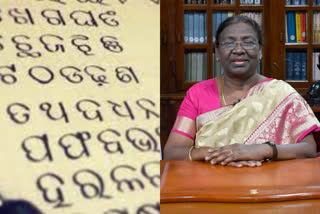 ଖ ଗ ଘ ଙ
ଚ ଛ ଜ ଝ ଞ
ଟ ଠ ଡ ଢ ଣ
ତ ଥ ଦ ଧ ନ
ପ ଫ ବ ଭ
ର ଳ